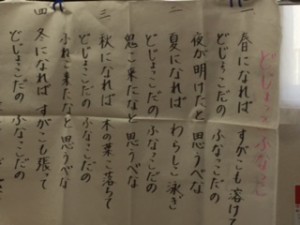 どじょっこ ふなっこ
一 春になれば すがこも溶けて
どじょっこだの ふなっこだの
夜が明けたと 思うべな
二 夏になれば わらしこ泳ぎ
どじょっこだの ふなっこだの
鬼こ来たなと 思うべな
三 秋になれば 木の葉こ落ちて
どじょっこだの ふなっこだの
ふね来たなと 思うべな
四 冬になれば すがこも張って
どじょっこだの ふなっこだの